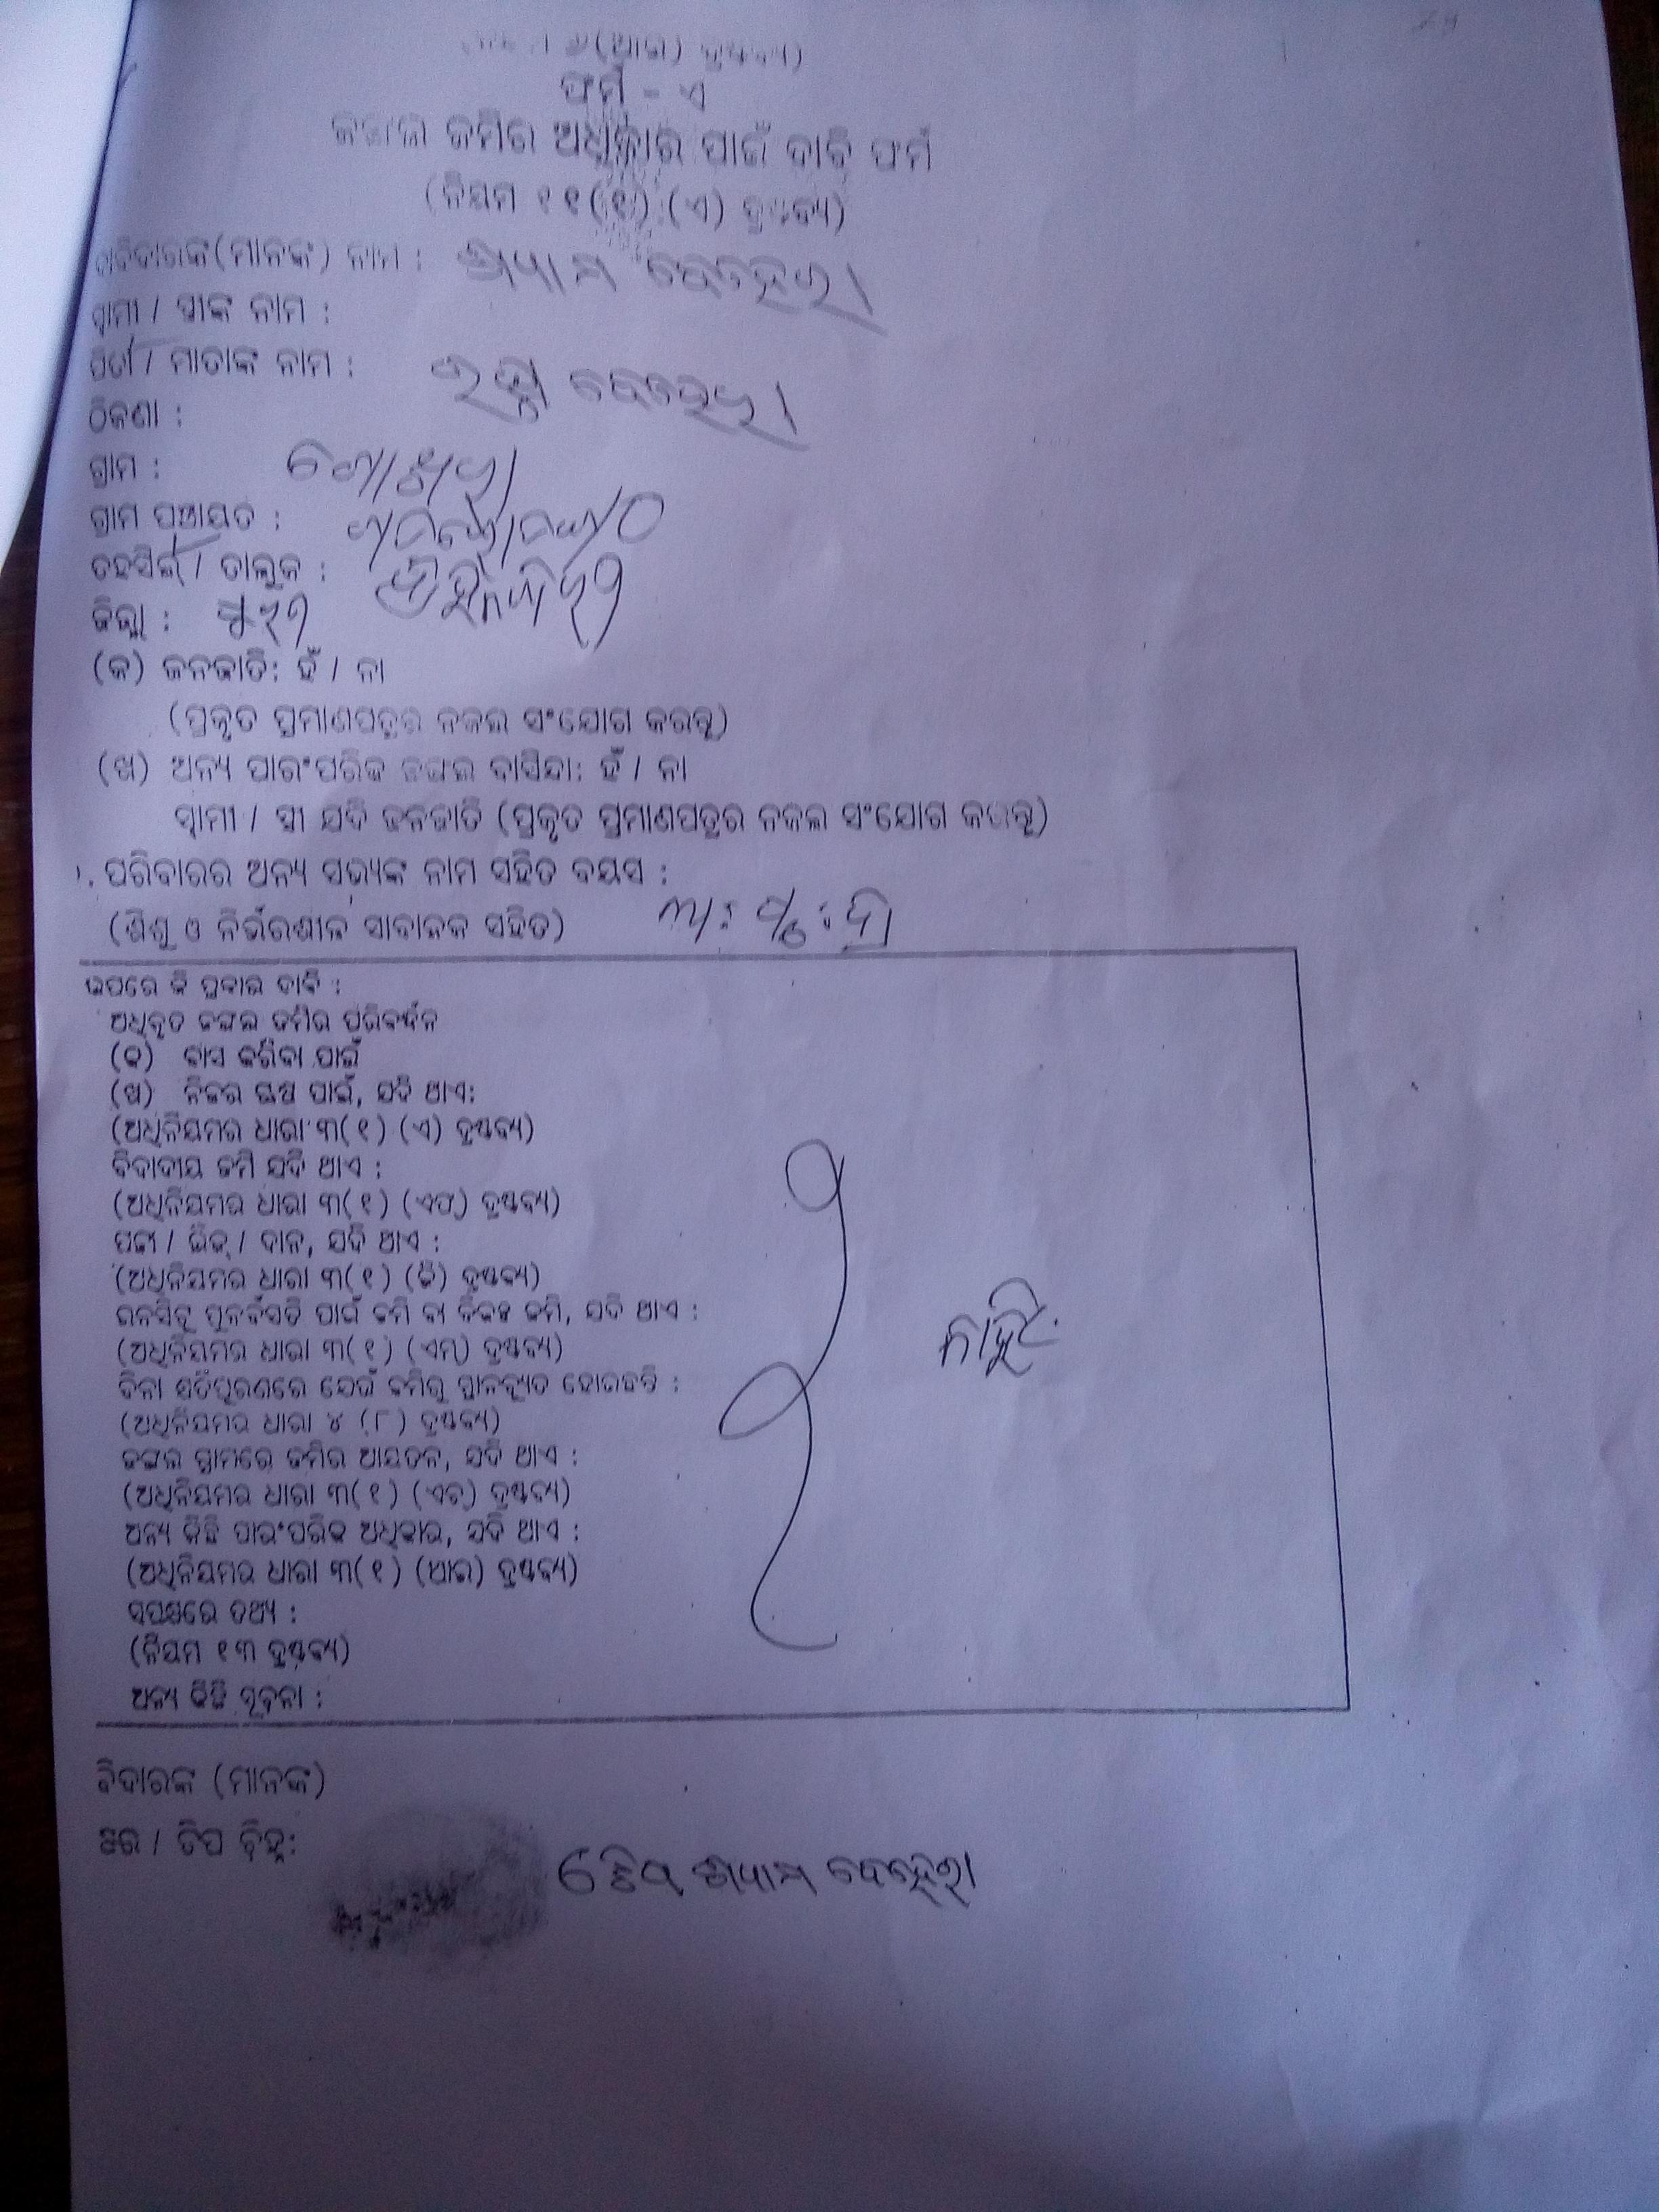 ୬(ଆଇ) ଦ୍ରଷ୍ଟବ୍ୟ)
ଫର୍ମ - ଏ
ଜଙ୍ଗଲ ଜମିର ଅଧିକାର ପାଇଁ ଦାବି ଫର୍ମ
(ନିୟମ ୧୧(୧) (ଏ) ଦ୍ରଷ୍ଟବ୍ୟ)
ଦାବିଦାରଙ୍କ(ମାନଙ୍କ) ନାମ : ଶ୍ୟାମ ବେହେରା
ସ୍ୱାମୀ / ସ୍ତ୍ରୀଙ୍କ ନାମ :
ପିତା / ମାତାଙ୍କ ନାମ : ବେହେରା
ଠିକଣା :
ଗ୍ରାମ :
ଗ୍ରାମ ପଞ୍ଚାୟତ :
ତହସିଲ୍ / ତାଲୁକ :
ଜିଲ୍ଲା : ପୁରୀ
(କ) ଜନଜାତି: ହଁ / ନା
(ପ୍ରକୃତ ପ୍ରମାଣପତ୍ରର ନକଲ ସଂଯୋଗ କରନ୍ତୁ)
(ଖ) ଅନ୍ୟ ପାରଂପରିକ ଜଙ୍ଗଲ ବାସିନ୍ଦା: ହଁ / ନା
ସ୍ୱାମୀ / ସ୍ତ୍ରୀ ଯଦି ଜନଜାତି (ପ୍ରକୃତ ପ୍ରମାଣପତ୍ରର ନକଲ ସଂଯୋଗ କରନ୍ତୁ)
. ପରିବାରର ଅନ୍ୟ ସଭ୍ୟଙ୍କ ନାମ ସହିତ ବୟସ :
(ଶିଶୁ ଓ ନିର୍ଭରଶୀଳ ସାବାଳକ ସହିତ)
ଉପରେ କି ପ୍ରକାର ଦାବି :
ଅଧିକୃତ ଜଙ୍ଗଲ ଜମିର ପରିବର୍ଦ୍ଧନ
(କ) ବାସ କରିବା ପାଇଁ
(ଖ) ନିଜର ଚାଷ ପାଇଁ, ଯଦି ଥାଏ:
(ଅଧିନିୟମର ଧାରା ୩(୧) (ଏ) ଦ୍ରଷ୍ଟବ୍ୟ)
ବିବାଦୀୟ ଜମି ଯଦି ଥାଏ :
(ଅଧିନିୟମର ଧାରା ୩(୧) (ଏଫ୍) ଦ୍ରଷ୍ଟବ୍ୟ)
ପଟ୍ଟା / ଲିଜ୍ / ଦାନ, ଯଦି ଥାଏ :
(ଅଧିନିୟମର ଧାରା ୩(୧) (ଜି) ଦ୍ରଷ୍ଟବ୍ୟ)
ଇନସିଟୁ ପୁନର୍ବସତି ପାଇଁ ଜମି ବା ବିକଳ୍ପ ଜମି, ଯଦି ଥାଏ :
(ଅଧିନିୟମର ଧାରା ୩(୧) (ଏମ୍) ଦ୍ରଷ୍ଟବ୍ୟ)
ବିନା କ୍ଷତିପୂରଣରେ ଯେଉଁ ଜମିରୁ ସ୍ଥାନଚ୍ୟୁତ ହୋଇଛନ୍ତି :
(ଅଧିନିୟମର ଧାରା ୪ (୮) ଦ୍ରଷ୍ଟବ୍ୟ)
ଜଙ୍ଗଲ ଗ୍ରାମରେ ଜମିର ଆୟତନ, ଯଦି ଥାଏ :
(ଅଧିନିୟମର ଧାରା ୩(୧) (ଏଚ୍) ଦ୍ରଷ୍ଟବ୍ୟ)
ଅନ୍ୟ କିଛି ପାରଂପରିକ ଅଧିକାର, ଯଦି ଥାଏ :
(ଅଧିନିୟମର ଧାରା ୩(୧) (ଆଇ) ଦ୍ରଷ୍ଟବ୍ୟ)
ସପକ୍ଷରେ ତଥ୍ୟ :
(ନିୟମ ୧୩ ଦ୍ରଷ୍ଟବ୍ୟ)
ଅନ୍ୟ କିଛି ସୂଚନା :
ନାହିଁ
ବିଦାରଙ୍କ (ମାନଙ୍କ)
କ୍ଷର / ଟିପ ଚିହ୍ନ: ଟିପ ଶ୍ୟାମ ବେହେରା